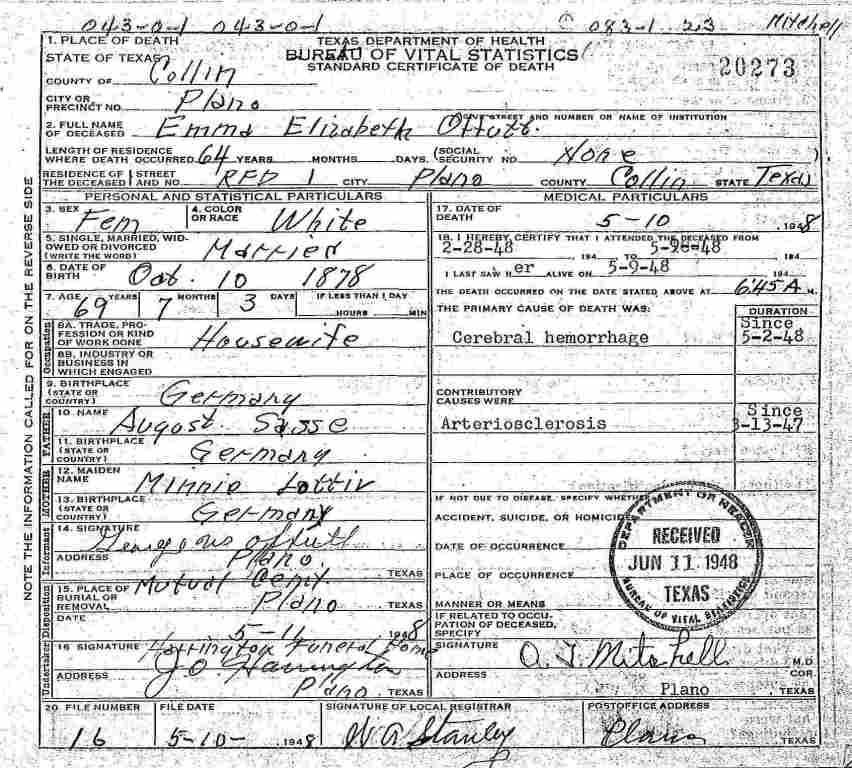 043-0-1 043-0-1 083-1 23 Mitchell
1. PLACE OF DEATH
STATE OF TEXAS
COUNTY OF Collin
TEXAS DEPARTMENT OF HEALTH
BUREAU OF VITAL STATISTICS
STANDARD CERTIFICATE OF DEATH
20273
CITY OR
PRECINCT NO. Plano
GIVE STREET AND NUMBER OR NAME OF INSTITUTION
2. FULL NAME
OF DECEASED Emma Elizabeth Offutt.
LENGTH OF RESIDENCE
WHERE DEATH OCCURRED 64 YEARS MONTHS DAYS. (SOCIAL
SECURITY NO None )
RESIDENCE OF STREET
THE DECEASED AND NO. RFD 1 CITY Plano COUNTY Collin STATE Texas
PERSONAL AND STATISTICAL PARTICULARS
3. SEX Fem
4. COLOR
OR RACE White
5. SINGLE, MARRIED, WID-
OWED OR DIVORCED
(WRITE THE WORD) Married
6. DATE OF
BIRTH Oct. 10 1878
7. AGE 69 YEARS 7 MONTHS 3 DAYS IF LESS THAN 1 DAY
HOURS MIN
Occupation
8A. TRADE, PRO-
FESSION OR KIND
OF WORK DONE Housewife
8B. INDUSTRY OR
BUSINESS IN
WHICH ENGAGED
9. BIRTHPLACE
(STATE OR
COUNTRY) Germany
FATHER
10. NAME August Sasse
11. BIRTHPLACE
(STATE OR
COUNTRY) Germany
MOTHER
12. MAIDEN
NAME Minnie
13. BIRTHPLACE
(STATE OR
COUNTRY) Germany
Informant
14. SIGNATURE
ADDRESS Plano, TEXAS
Disposition
15. PLACE OF
BURIAL OR
REMOVAL Mutual Cem.
Plano TEXAS
DATE 5-11 1948
Undertaker
16 SIGNATURE Harrington Funeral Home
J.O. Harrington
ADDRESS Plano. TEXAS
MEDICAL PARTICULARS
17. DATE OF
DEATH 5-10 1948
18. I HEREBY CERTIFY THAT I ATTENDED THE DECEASED FROM
2-28-48 194 TO 194
I LAST SAW H er ALIVE ON 5-9-48 194
THE DEATH OCCURRED ON THE DATE STATED ABOVE AT 6:45 A M.
THE PRIMARY CAUSE OF DEATH WAS: DURATION
Cerebral hemorrhage Since
5-2-48
CONTRIBUTORY
CAUSES WERE
Arteriosclerosis Since
3-13-47
IF NOT DUE TO DISEASE, SPECIFY WHETHER
ACCIDENT, SUICIDE, OR HOMICIDE
DATE OF OCCURRENCE
PLACE OF OCCURRENCE
MANNER OR MEANS
IF RELATED TO OCCU-
PATION OF DECEASED,
SPECIFY
DEPARTMENT OF HEALTH
RECEIVED
JUN 11 1948
TEXAS
BUREAU OF VITAL STATISTICS
SIGNATURE O. T. Mitchell M.D.
COR.
ADDRESS Plano TEXAS
20. FILE NUMBER 16
FILE DATE 5-10- 1948
SIGNATURE OF LOCAL REGISTRAR W A Stanley
POSTOFFICE ADDRESS Plano TEXAS
NOTE THE INFORMATION CALLED FOR ON THE REVERSE SIDE